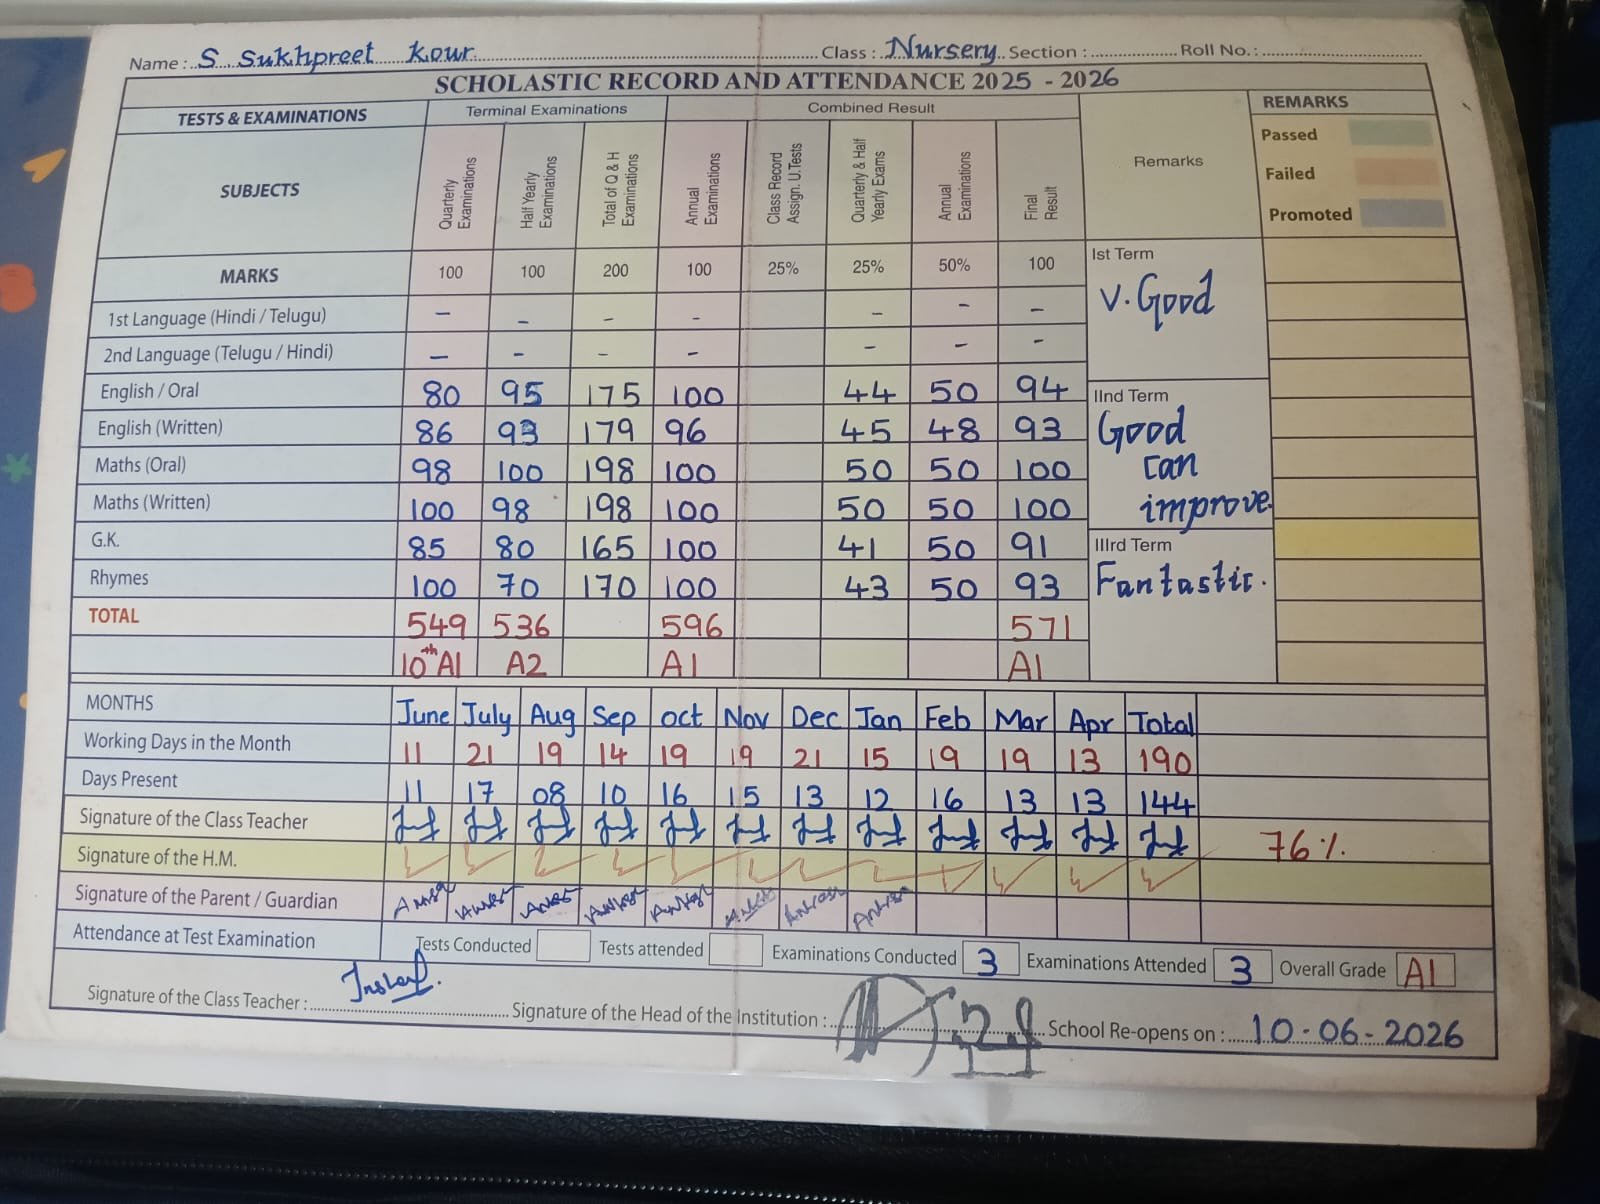 Name : S Sukhpreet Kour. Class : Nursery Section : Roll No. :
SCHOLASTIC RECORD AND ATTENDANCE 2025 - 2026
TESTS & EXAMINATIONS Terminal Examinations Combined Result Remarks REMARKS
Passed
Failed
Promoted
SUBJECTS Quarterly Examinations Half Yearly Examinations Total of Q & H Examinations Annual Examinations Class Record Assign. U.Tests Quarterly & Half Yearly Exams Annual Examinations Final Result
MARKS 100 100 200 100 25% 25% 50% 100
1st Language (Hindi / Telugu) - - - - - - -
2nd Language (Telugu / Hindi) - - - - - - -
English / Oral 80 95 175 100 44 50 94
English (Written) 86 93 179 96 45 48 93
Maths (Oral) 98 100 198 100 50 50 100
Maths (Written) 100 98 198 100 50 50 100
G.K. 85 80 165 100 41 50 91
Rhymes 100 70 170 100 43 50 93
TOTAL 549 536 596 571
10th A1 A2 A1 A1
Ist Term
V. Good
IInd Term
Good
can
improve.
IIIrd Term
Fantastic.
MONTHS June July Aug Sep oct Nov Dec Jan Feb Mar Apr Total
Working Days in the Month 11 21 19 14 19 19 21 15 19 19 13 190
Days Present 11 17 08 10 16 15 13 12 16 13 13 144
Signature of the Class Teacher 76%.
Signature of the H.M.
Signature of the Parent / Guardian
Attendance at Test Examination Tests Conducted Tests attended Examinations Conducted 3 Examinations Attended 3 Overall Grade A1
Signature of the Class Teacher : Signature of the Head of the Institution : School Re-opens on : 10-06-2026